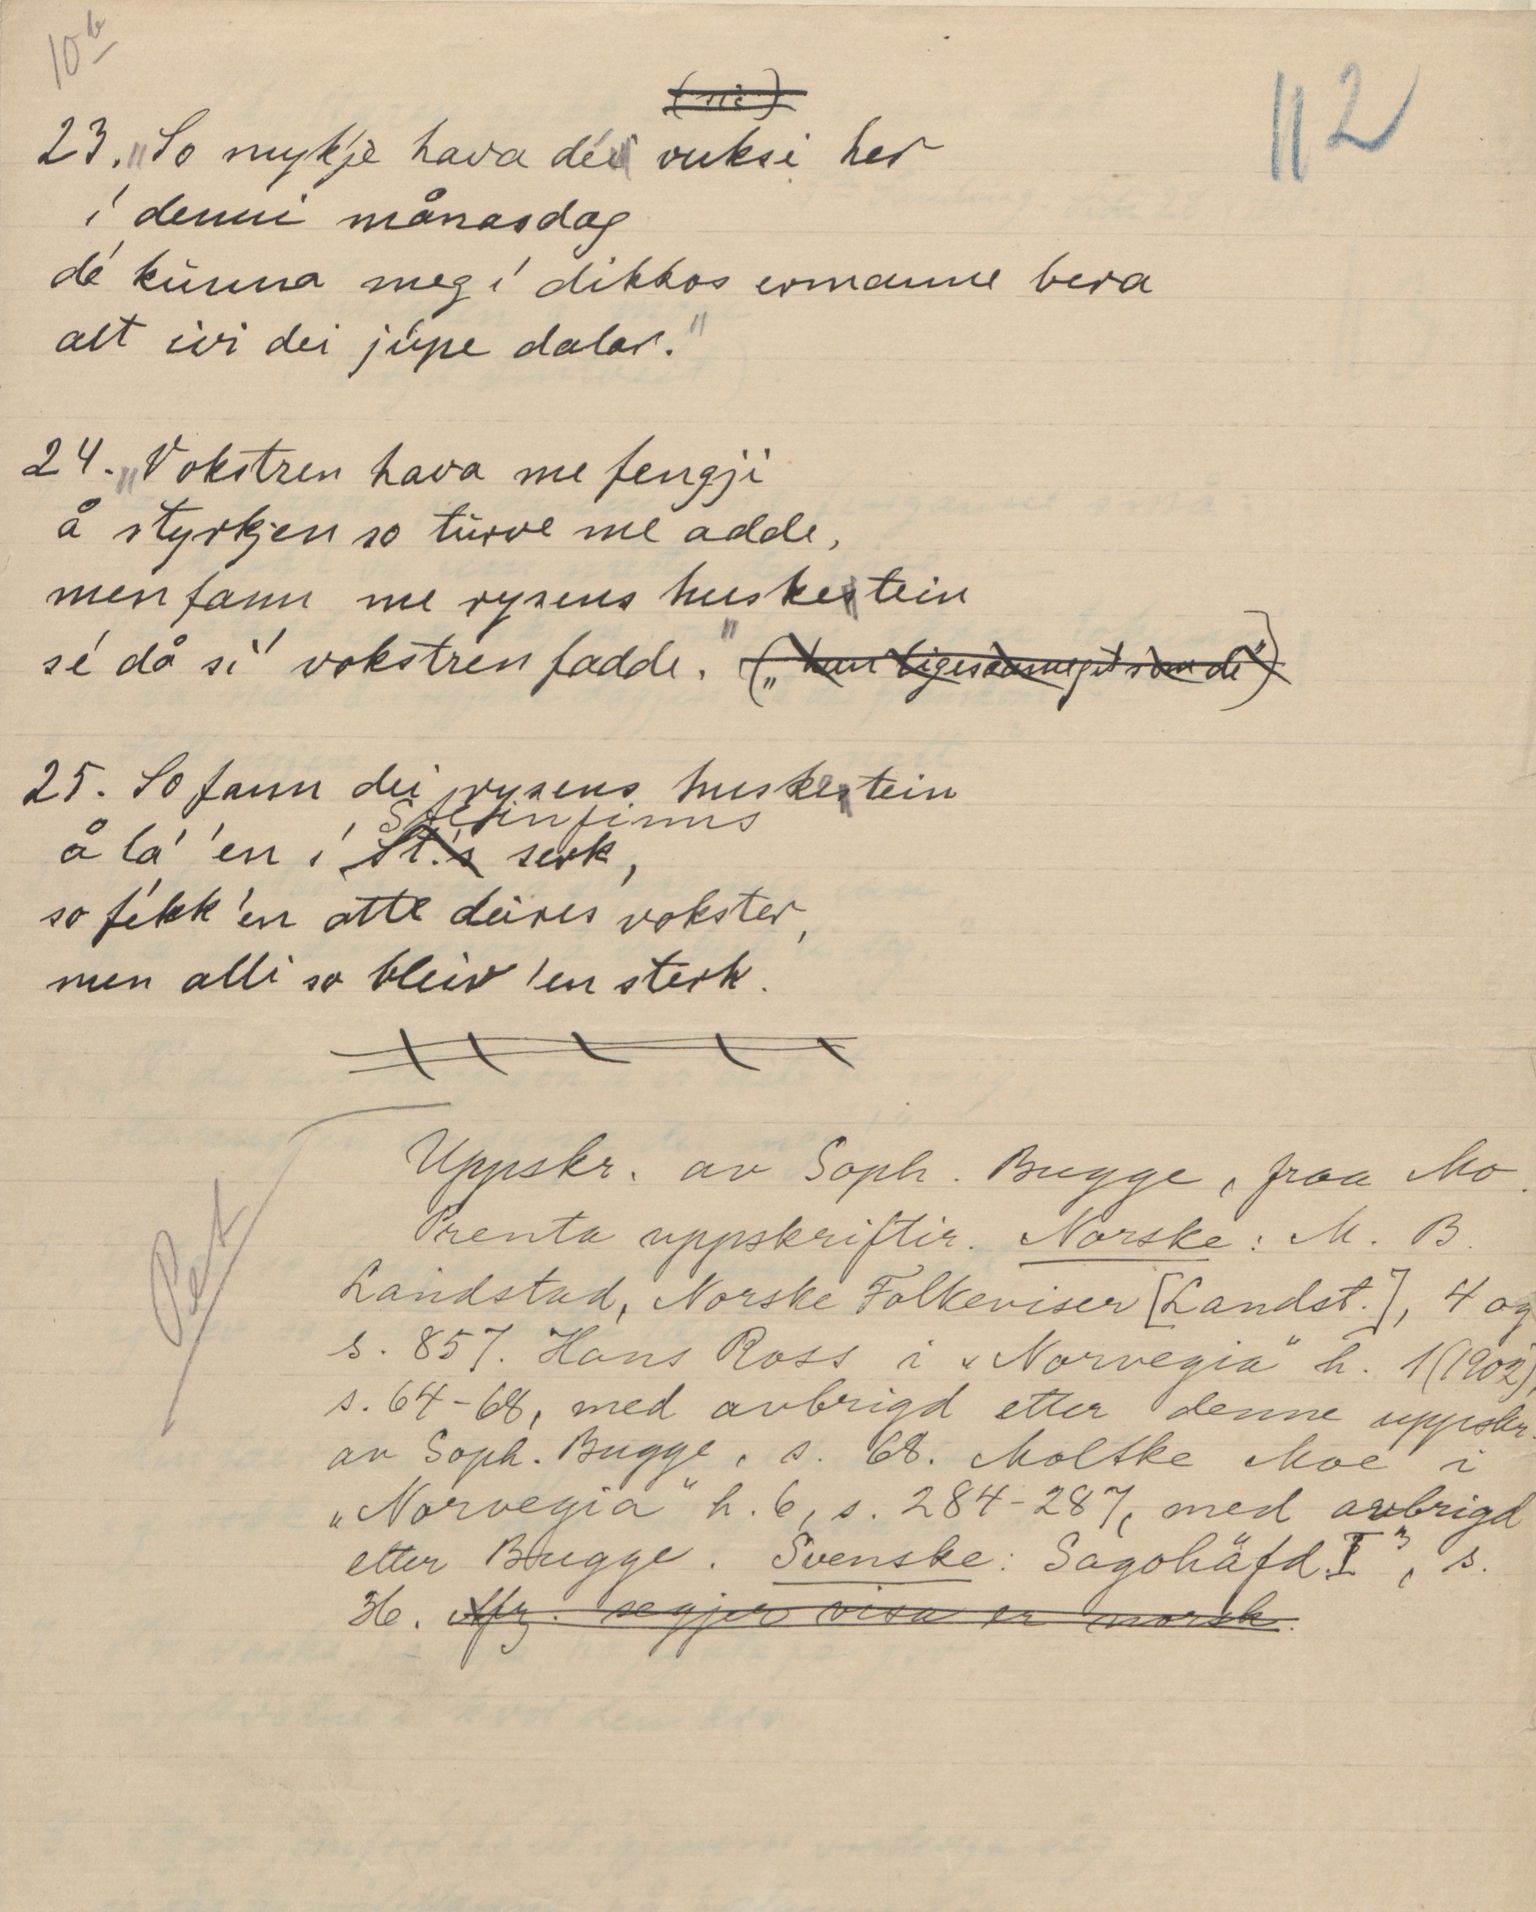 10b
112
(sic)
23. "So mykje hava dei vuksi her
í denni månasdag
dé kunna meg í dikkos ermanne bera
alt ivi dei júpe dalar."
24. "Vokstren hava me fengji
å styrkjen so turve me adde,
men fann me rysens huskestein
sé då si' vokstren fadde." („han ligesaameget som de")
25. So fann dei rysens huskestein
Steinfinns
å la' 'en í St.'s serk,
so fékk 'en atte deires vokster,
men alli so bleiv 'en sterk.
Uppskr. av Soph. Bugge, fraa Mo.
Prenta uppskriftir. Norske: M. B.
Landstad, Norske Folkeviser [Landst.], 4 og
s. 857. Hans Ross i „Norvegia" h. 1 (1902),
s. 64-68, med avbrigd etter denne uppskr.
av Soph. Bugge, s. 68. Moltke Moe i
„Norvegia" h. 6, s. 284-287, med avbrigd
etter Bugge. Svenske: Sagohäfd. I³, s.
36. segjer visa er norsk.